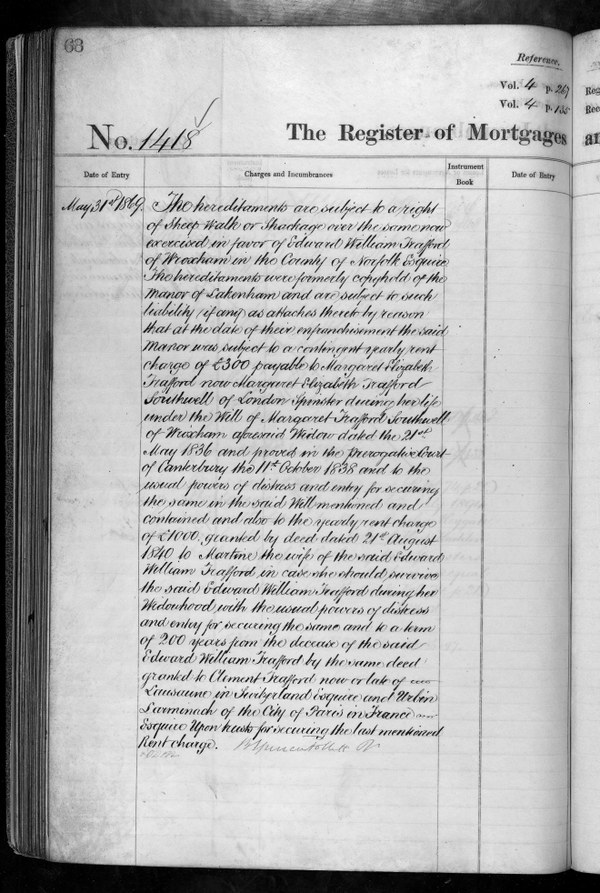 63
Reference.
Vol. 4 p. 267
Vol. 4 p. 135
No. 1418
The Register of Mortgages
Date of Entry
Charges and Incumbrances
Instrument
Book
Date of Entry
May 31st 1869. The hereditaments are subject to a right
of Sheep Walk or Shackage over the same now
exercised in favor of Edward William Trafford
of Wroxham in the County of Norfolk Esquire
The hereditaments were formerly copyhold of the
Manor of Lakenham and are subject to such
liability (if any) as attaches thereto by reason
that at the date of their enfranchisement the said
Manor was subject to a contingent yearly rent
charge of £300 payable to Margaret Elizabeth
Trafford now Margaret Elizabeth Trafford
Southwell of London Spinster during her life
under the Will of Margaret Trafford Southwell
of Wroxham aforesaid Widow dated the 21st
May 1836 and proved in the Prerogative Court
of Canterbury the 11th October 1838 and to the
usual powers of distress and entry for securing
the same in the said Will mentioned and
contained and also to the yearly rent charge
of £1000 granted by deed dated 21st August
1840 to Martine the wife of the said Edward
William Trafford in case she should survive
the said Edward William Trafford during her
Widowhood with the usual powers of distress
and entry for securing the same and to a term
of 200 years from the decease of the said
Edward William Trafford by the same deed
granted to Clement Trafford now or late of
Lausanne in Switzerland Esquire and Urbin
of the City of Paris in France
Esquire Upon trusts for securing the last mentioned
Rent charge.